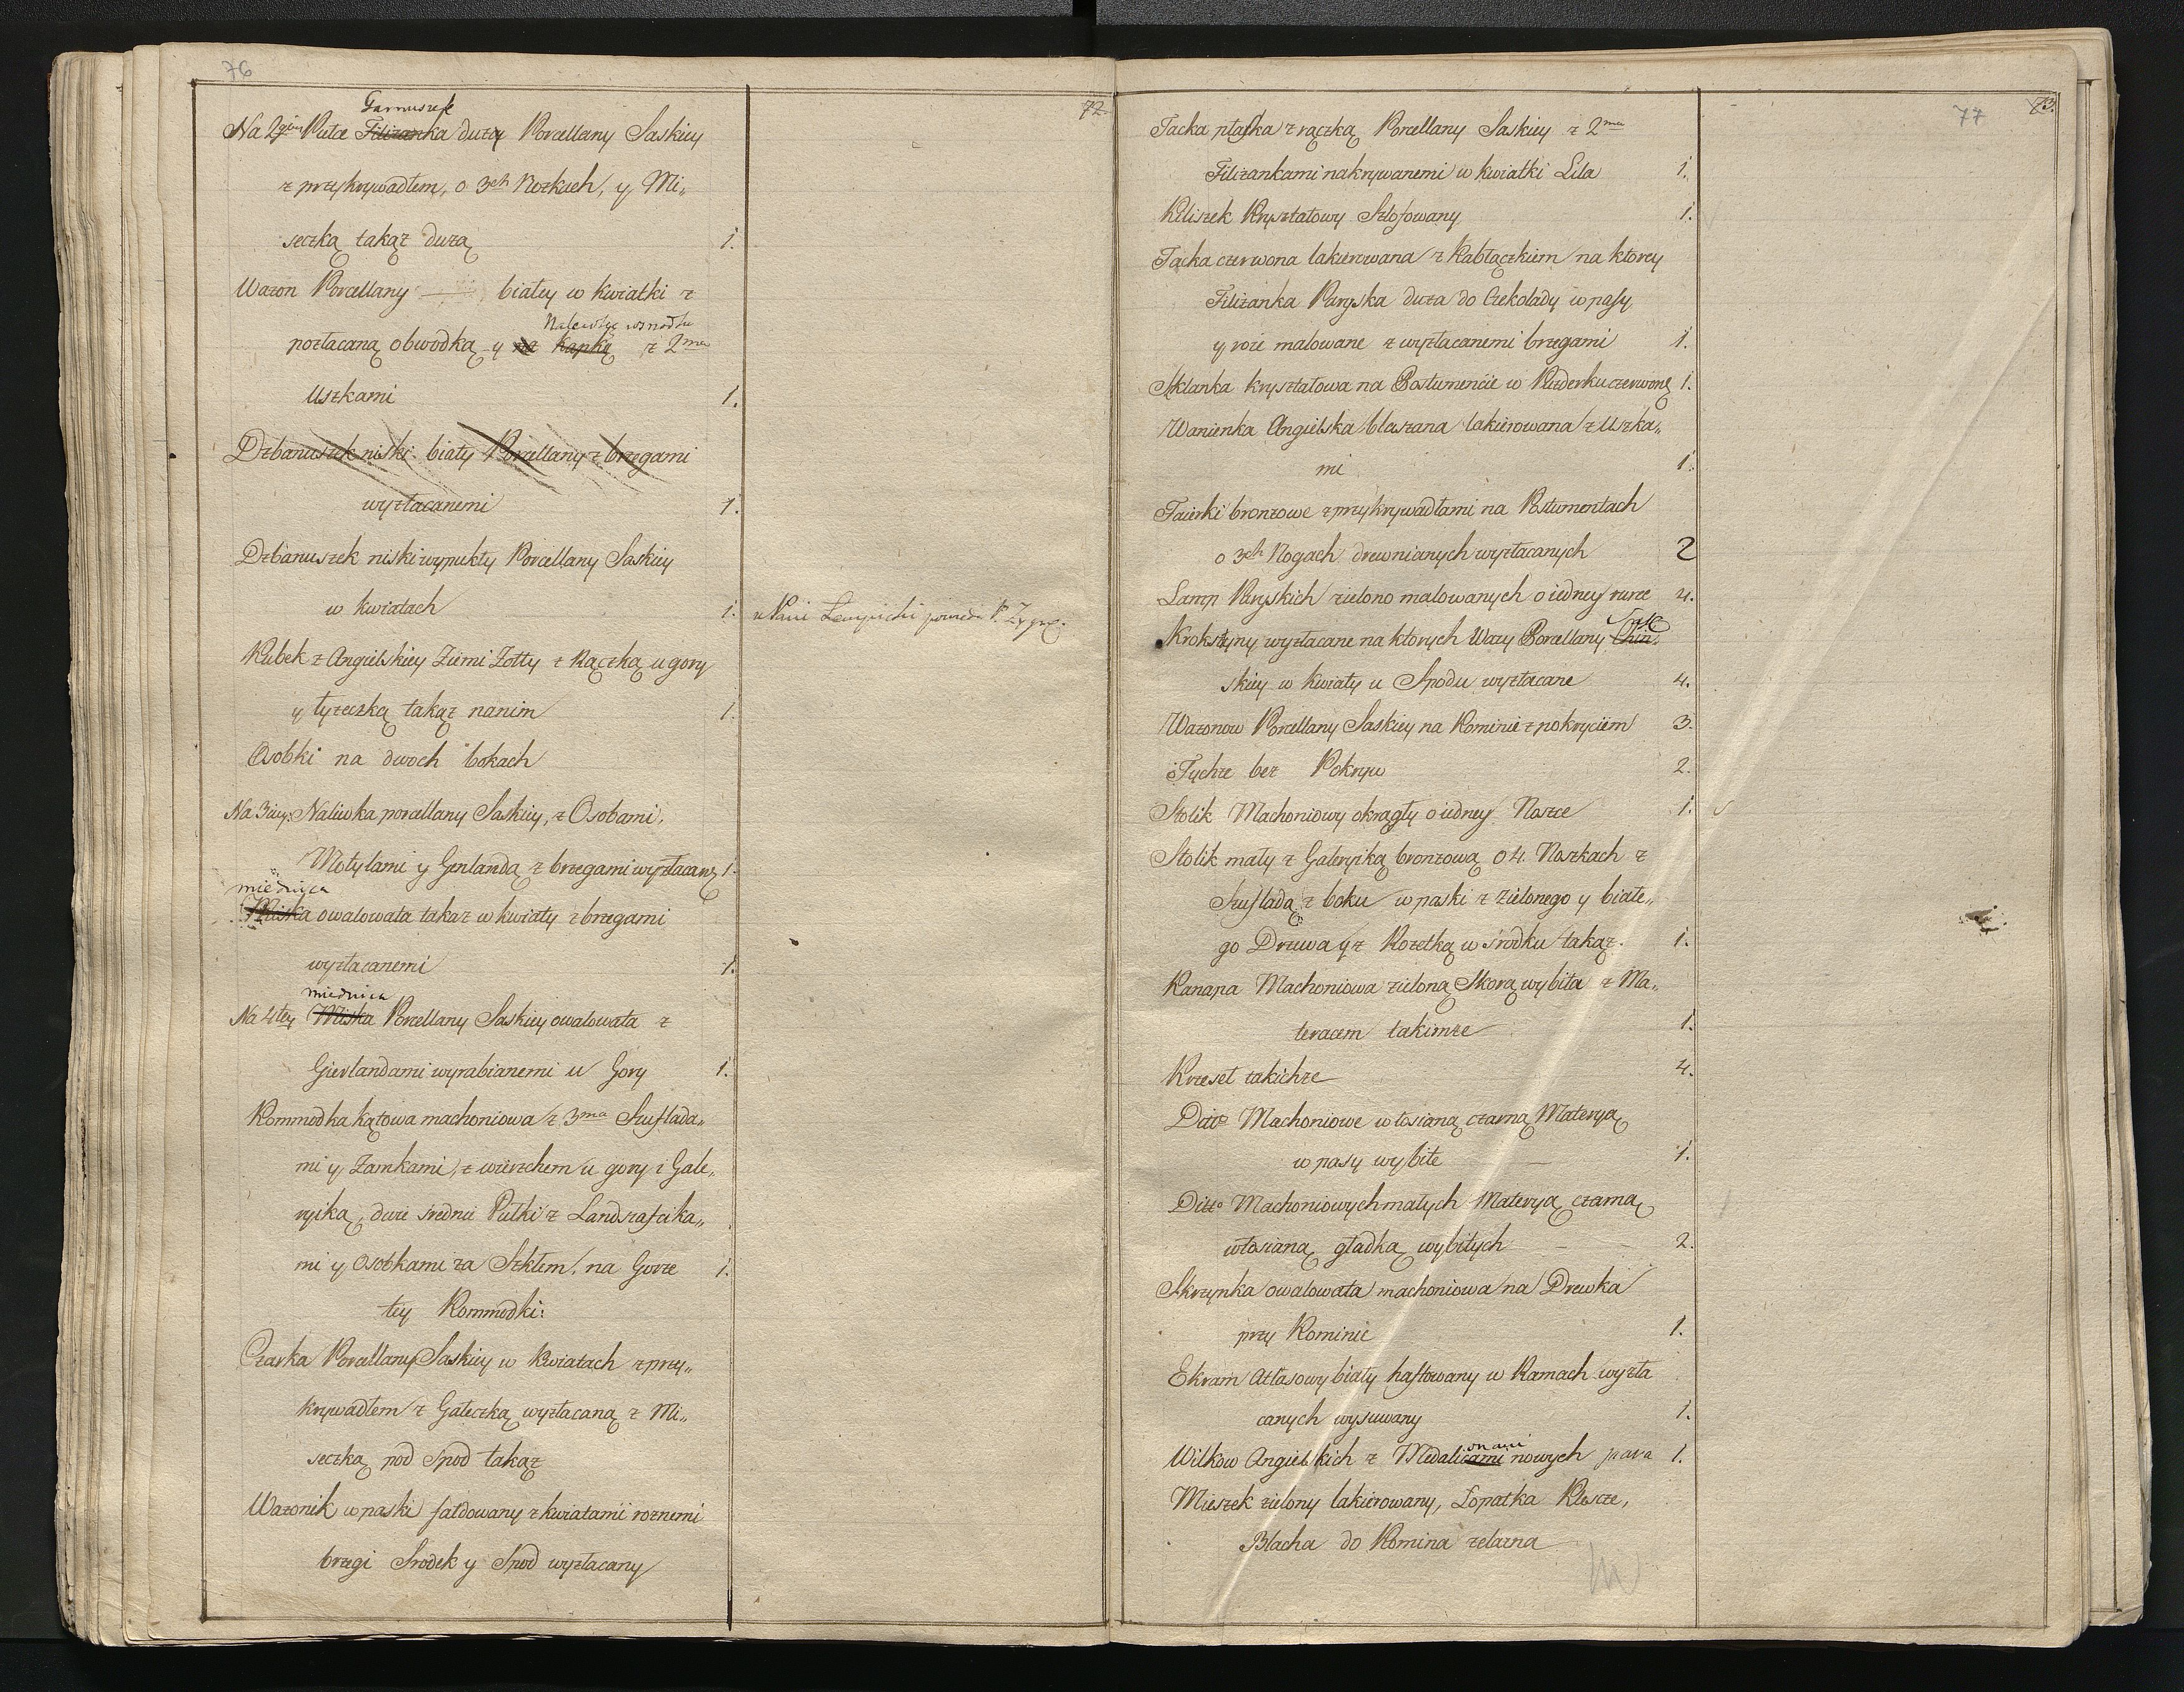 76
72
Garnuszek
Na 2giey Pułce Filiżanka duża Porcellany Saskiey
z przykrywadłem, o 3ch Nożkach, y Mi„
seczką takąż dużą 1.
Wazon Porcellany — białey w kwiatki z
Nalewkę w środku
pozłacaną obwodką y na kapkę z 2ma
Uszkami 1.
Dzbanuszek niski biały Porcellany z brzegami
wyzłacanemi 1.
Dzbanuszek niski wypukły Porcellany Saskiey
w kwiatach 1.
u Pani Lempicki
Kubek z Angielskiey Ziemi Zołty z Rączką u gory
y łyzeczką takąz nanim 1.
Osobki na dwoch bokach
Na 3ciey: Naliwka porcellany Saskiey, z Osobami,
Motylami y Genlandą z brzegami wyzłacane 1.
miednica
Miska owalowata takaz w kwiaty z brzegami
wyzłacanemi 1.
miednica
Na 4tey Miska Porcellany Saskiey owalowata z
Gierlandami wyrabianemi u Gory 1.
Kommodka kątowa machoniowa z 3ma Szuflada„
mi y Zamkami, z wierzchem u gory i Gale„
ryiką, dwie srednie Pułki z Landszafcika„
mi y Osobkami za Szkłem. na Gorze 1.
tey Kommodki:
Czarka Porcellany Saskiey w Kwiatach z przy„
krywadłem z Gałeczką wyzłacaną z Mi„
seczką pod Spod takąz
Wazonik w paski fałdowany z kwiatami roznemi
brzegi Srodek y Spod wyzłacany
77 73.
Tacka płaska z rączką Porcellany Saskiey z 2ma
Filizankami nakrywanemi w kwiatki Lila 1.
Kiliszek Kryształowy Szlofowany 1.
Tacka czerwona lakierowana z Kabłączkiem na ktorey
Filizanka Paryska duza do Czekolady w pasy
y roze malowane z wyzłacanemi brzegami 1.
Szklanka kryształowa na Postumencie w Puzderku czerwone 1.
Wanienka Angielska blaszana lakierowana z Uszka„
mi 1.
Faierki bronzowe z przykrywadłami na Postumentach
o 3ch Nogach drewnianych wyzłacanych 2
Lamp Paryskich zielono malowanych o iedney rurze 4.
Sas
Koksztyny wyzłacane na ktorych Wazy Porcellany Chin„
skiey w kwiaty u Spodu wyzłacane 4.
Wazonow Porcellany Saskiey na Kominie z pokryciem 3.
Tychze bez Pokryw 2.
Stolik Machoniowy okrągły o iedney Noszce 1.
Stolik mały z Galeryiką bronzową o 4. Noszkach z
Szufladą z boku w paski z zielonego y białe„
go Drzewa y z Rozetką w srodku takąz. 1.
Kanapa Machoniowa zieloną Skorą wybita z Ma„
teracem takimze 1.
Krzeseł takichze 4.
Ditto Machoniowe włosianą czarną Materyą
w pasy wybite — 1.
Ditto Machoniowych małych Materyą czarną
włosianą gładką wybitych — — 2.
Skrzynka owalowata machoniowa na Drewka
przy Kominie 1.
Ekran Atłasowy biały haftowany w Ramach wyzła
canych wysuwany 1.
onami
Wilkow Angielskich z Medaliiami nowych para 1.
Mieszek zielony lakierowany, Lopatka Kleszcze,
Blacha do Komina zelazna